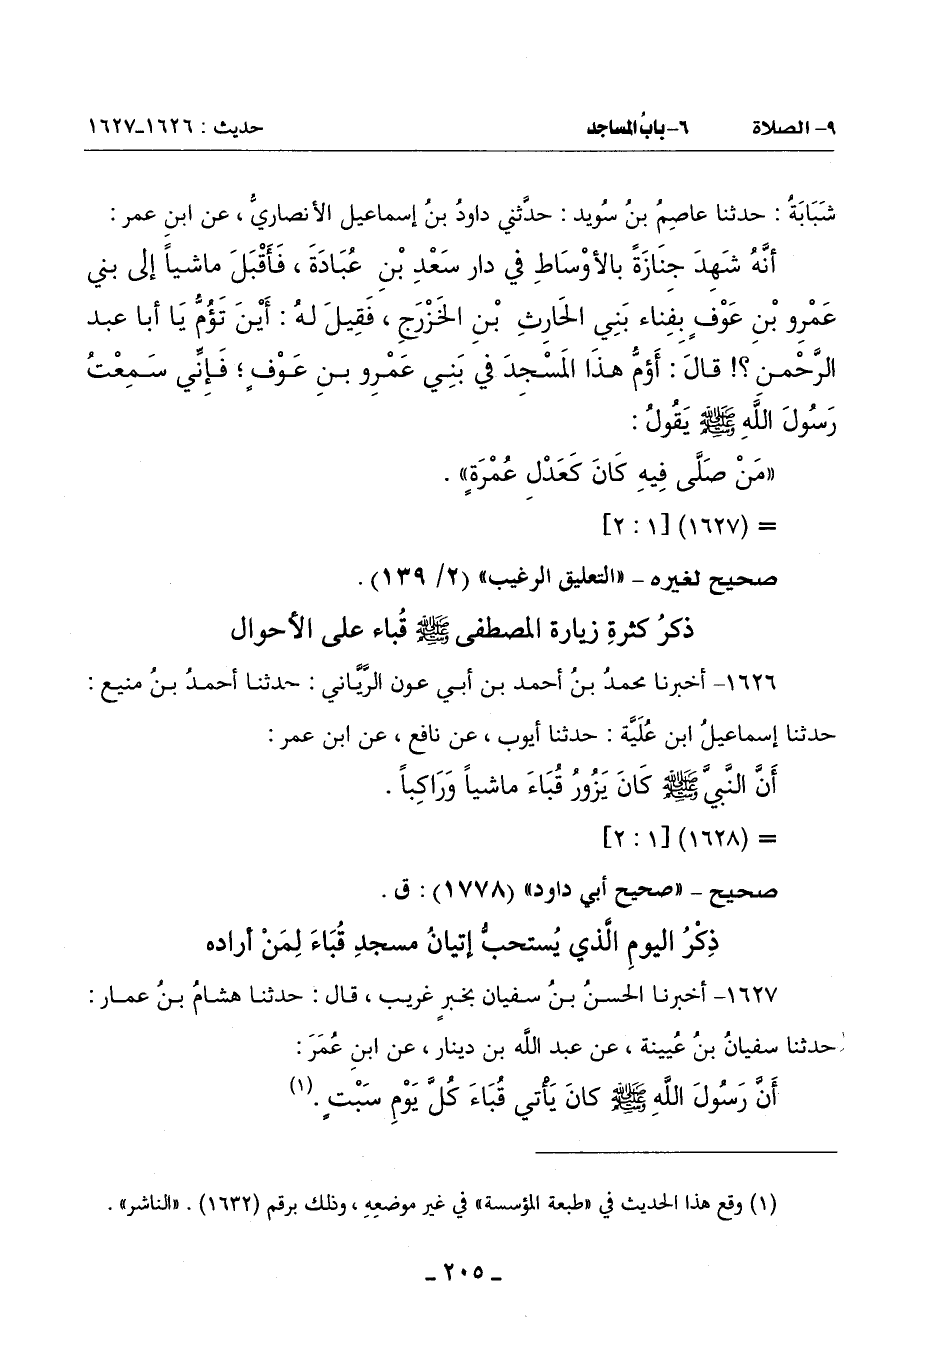 ٩- الصلاة ٦- بابُ المساجد حديث : ١٦٢٦-١٦٢٧
شَبَابَةُ : حدثنا عاصِمُ بنُ سُويد : حدَّثني داودُ بنُ إسماعيل الأنصاريُّ ، عن ابنِ عمر :
أنَّهُ شَهِدَ جِنَازَةً بالأوْسَاطِ في دار سَعْدِ بْنِ عُبَادَةَ ، فَأَقْبَلَ ماشياً إلى بني
عَمْرِو بْنِ عَوْفٍ بِفِناء بَنِي الحَارِثِ بْنِ الخَزْرَجِ ، فَقِيلَ لهُ : أيْنَ تَؤُمُّ يَا أبا عبد
الرَّحْمنِ ؟! قالَ : أؤمُّ هذَا المَسْجِدَ في بَنِي عَمْرِو بنِ عَوْفٍ ؛ فَإنِّي سَمِعْتُ
رَسُولَ اللَّهِ ﷺ يَقُولُ :
«مَنْ صَلَّى فِيهِ كَانَ كَعَدْلِ عُمْرَةٍ» .
= (١٦٢٧) [١ : ٢]
صحيح لغيره – «التعليق الرغيب» (٢/ ١٣٩) .
ذكرُ كثرةِ زيارة المصطفى ﷺ قُباء على الأحوال
١٦٢٦- أخبرنا محمدُ بنُ أحمد بن أبي عون الرَّيَّاني : حدثنا أحمدُ بنُ منيع :
حدثنا إسماعيلُ ابن عُلَيَّة : حدثنا أيوب ، عن نافع ، عن ابن عمر :
أَنَّ النَّبيَّ ﷺ كَانَ يَزُورُ قُبَاءَ ماشياً وَرَاكِباً .
= (١٦٢٨) [١ : ٢]
صحيح – «صحيح أبي داود» (١٧٧٨) : ق .
ذِكْرُ اليومِ الَّذي يُستحبُّ إتيانُ مسجدِ قُبَاءَ لِمَنْ أراده
١٦٢٧- أخبرنا الحسنُ بنُ سفيان بخبرٍ غريب ، قال : حدثنا هشامُ بنُ عمار :
حدثنا سفيانُ بنُ عُيينة ، عن عبد اللَّه بن دينار ، عن ابنِ عُمَرَ :
أَنَّ رَسُولَ اللَّهِ ﷺ كانَ يَأتي قُبَاءَ كُلَّ يَوْمِ سَبْتٍ .(١)
(١) وقع هذا الحديث في «طبعة المؤسسة» في غير موضعِهِ ، وذلك برقم (١٦٣٢) . «الناشر» .
- ٢٠٥ -